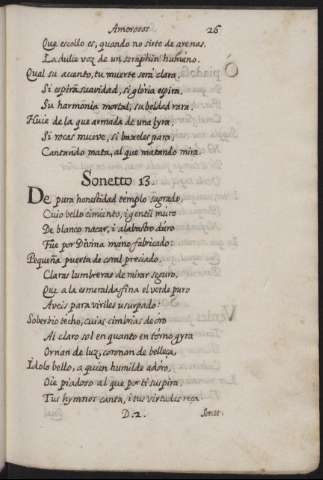 Amorosos 26
Que escollo es, quando no sirte de arenas.
La dulce voz de un seraphin humano.
Qual su accento, tu muerte será clara,
Si espira suavidad, si gloria espira,
Su harmonia mortal, su beldad rara,
Huie de la que armada de una lyra,
Si rocas mueve, si baxeles para,
Cantando mata, al que matando mira.
Sonetto 13
De pura honestidad templo sagrado,
Cuio bello cimiento, i gentil muro
De blanco nacar, i alabastro duro
Fue por Divina mano fabricado:
Pequeña puerta de coral preciado,
Claras lumbreras de mirar seguro,
Que a la esmeralda fina el verde puro
Aveis para viriles usurpado:
Soberbio techo, cuias cimbrias de oro
Al claro sol en quanto en torno gyra
Ornan de luz, coronan de belleça,
Idolo bello, a quien humilde adoro,
Oie piadoso al que por ti suspira,
Tus hymnos canta, i tus virtudes reça
D.2. Sonet.